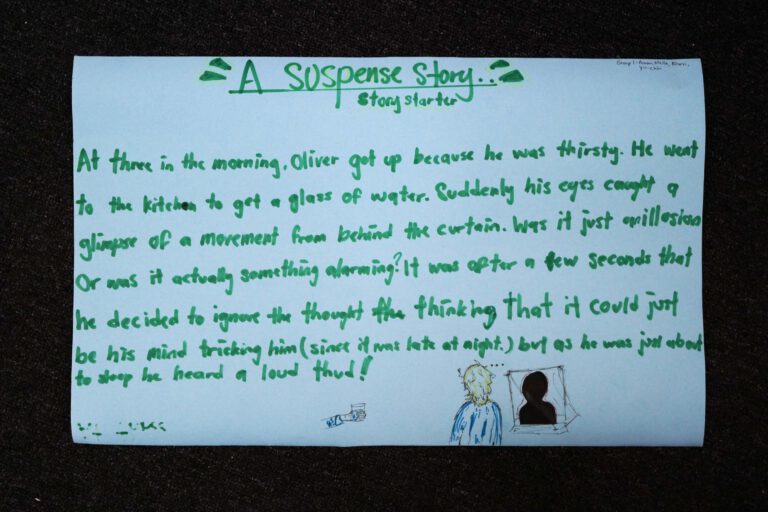 A Suspense Story..
Story starter
Group 1-
At three in the morning, Oliver got up because he was thirsty. He went
to the kitchen to get a glass of water. Suddenly his eyes caught a
glimpse of a movement from behind the curtain. Was it just an illusion
Or was it actually something alarming? It was after a few seconds that
he decided to ignore the thought the thinking that it could just
be his mind tricking him (since it was late at night.) but as he was just about
to sleep he heard a loud thud!